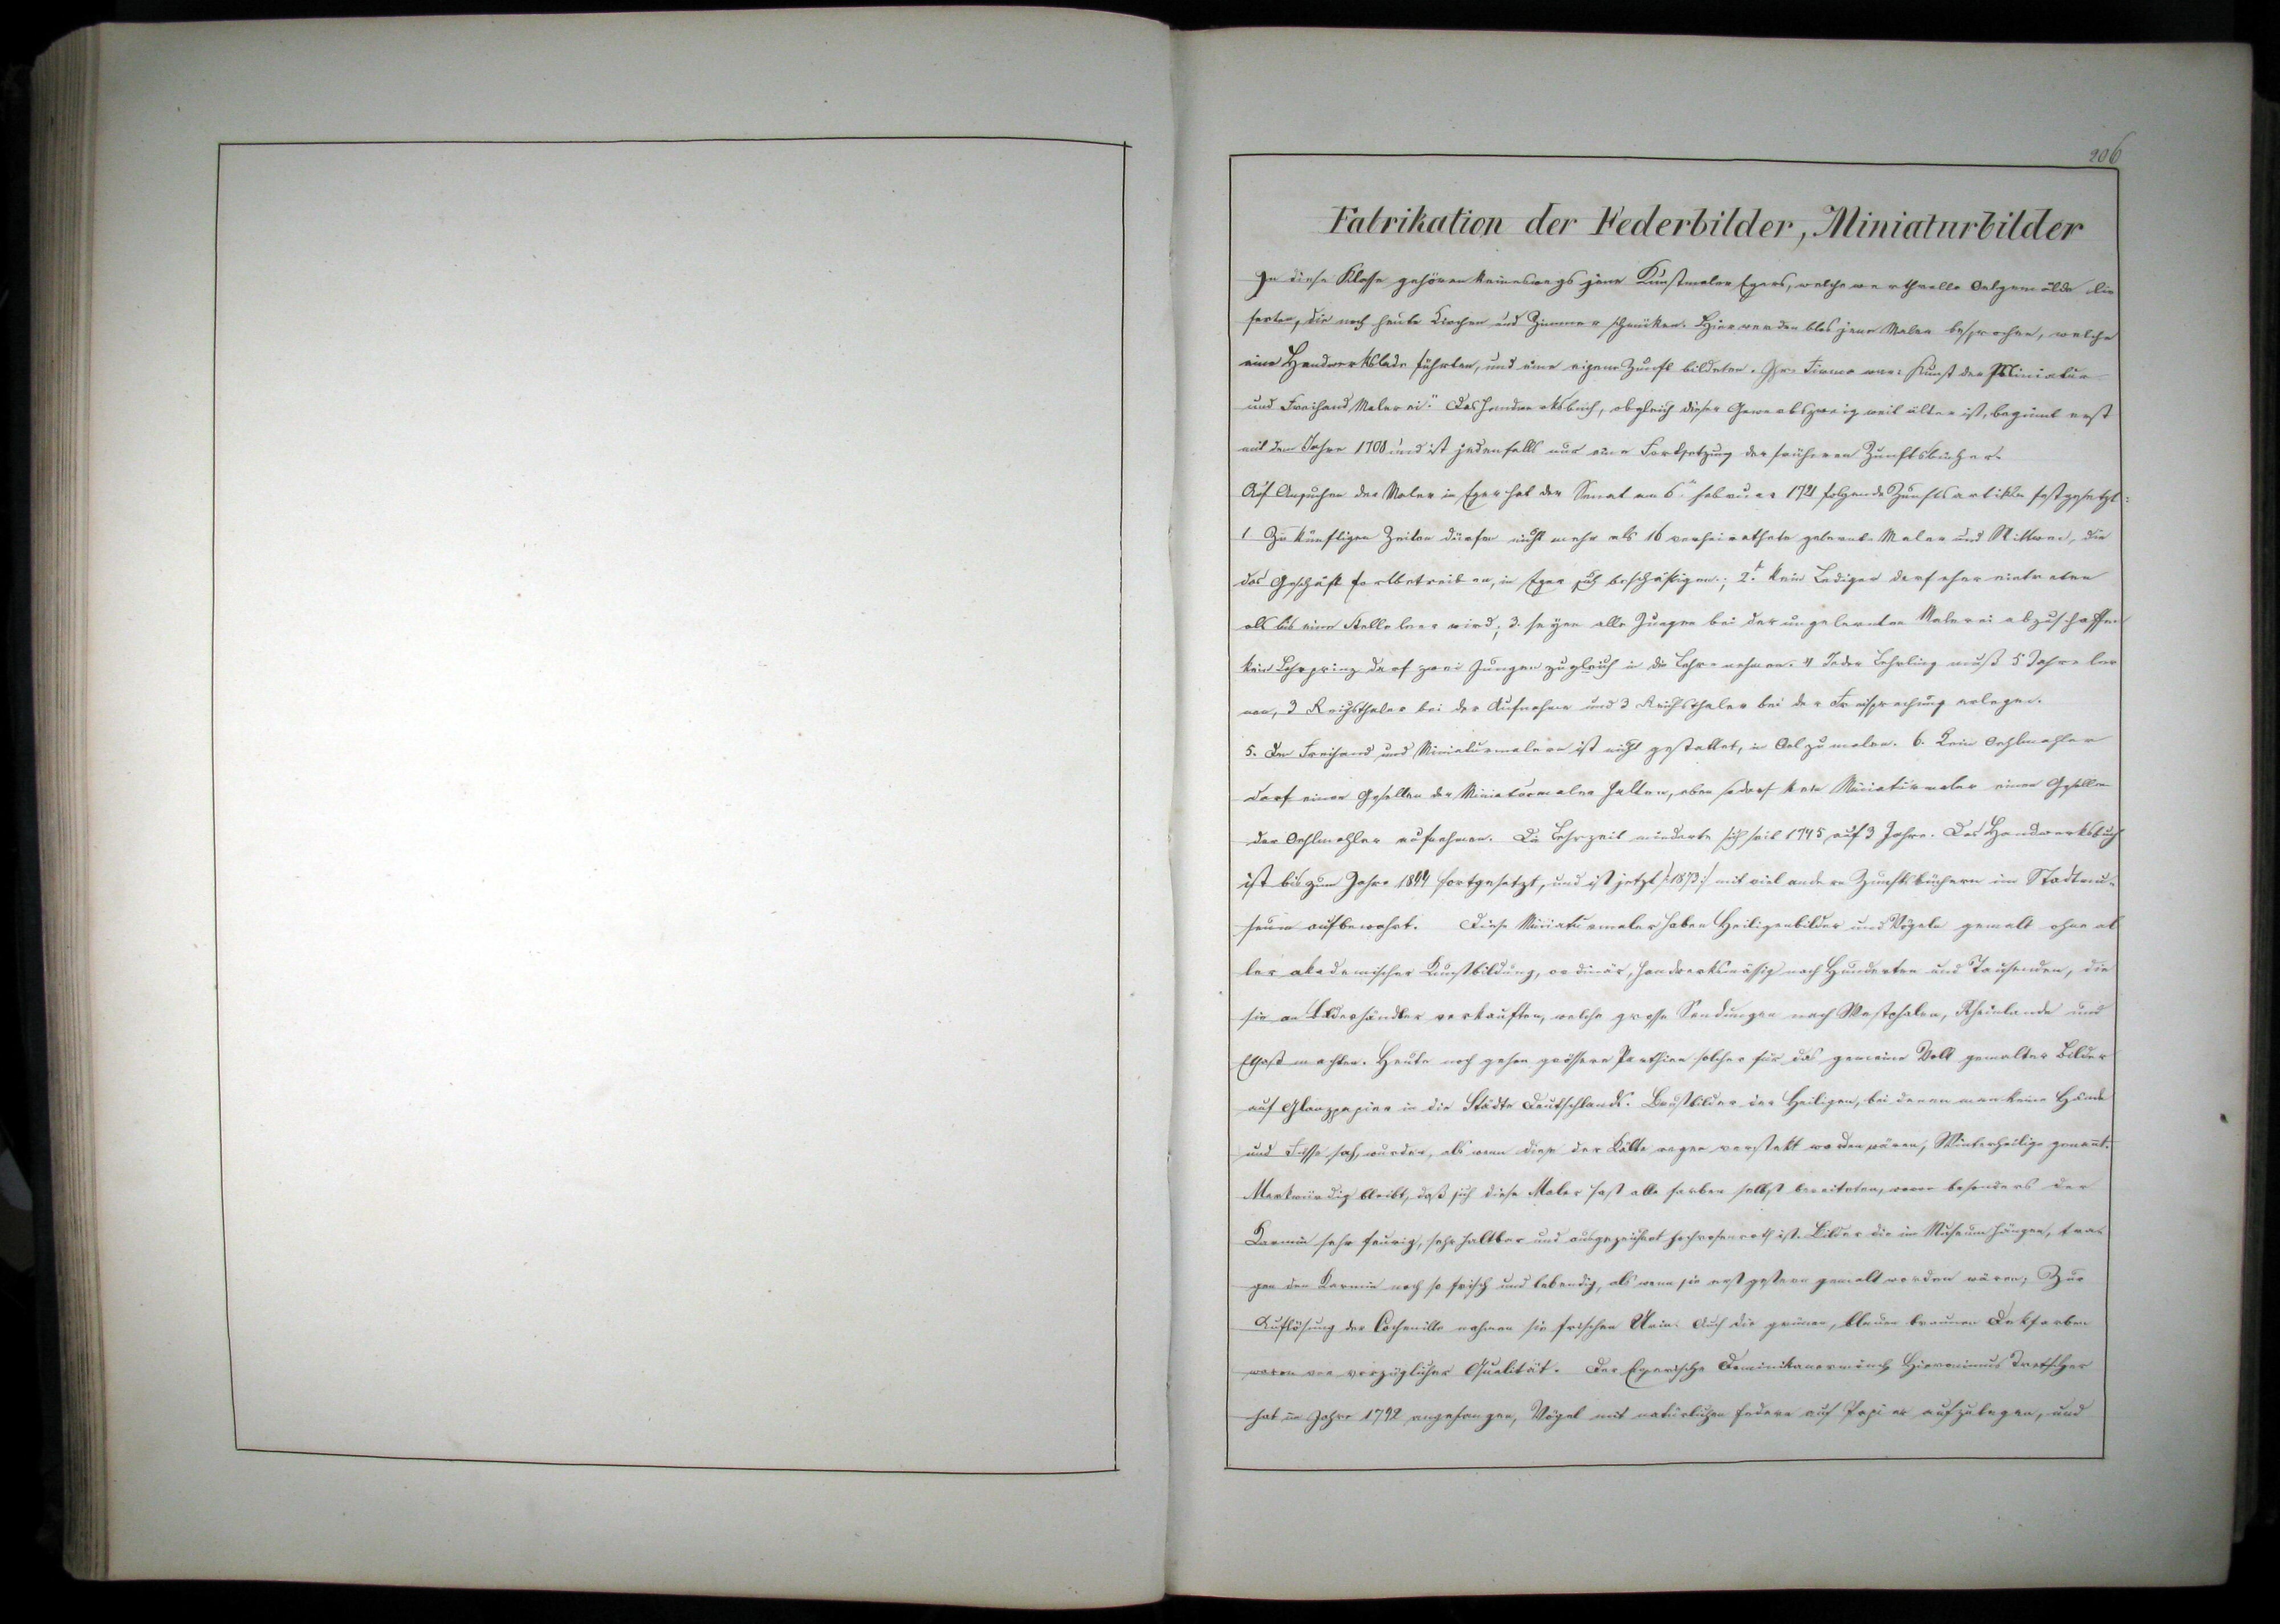 206
Fabrikation der Federbilder, Miniaturbilder
In diese Klasse gehören keineswegs jene Kunstmaler Egers, welche werthvolle Oelgemälde lie
ferten, die noch heute Kirchen und Zimmer schmüken. Hier werden blos jene Maler besprochen, welche
eine Handwerkslade führten, und eine eigene Zunft bildeten. Ihre Firma war: Kunst der Miniatur
und Freihand Malerei." Das Handwerksbuch, obgleich dieser Gewerbszweig weit älter ist, beginnt erst
mit dem Jahre 1708 und ist jedenfalls nur eine Fortsetzung der früheren Zunftsbücher.
Auf Ansuchen der Maler in Eger hat der Senat am 6. februar 1721 folgende Zunftsartikln festgesetzt:
1. Zu künftigen Zeiten dürfen nicht mehr als 16 verheirathete gelernte Maler und Wittwen, die
das Geschäft fortbetreiben, in Eger sich beschäftigen; 2t. kein Lediger darf eher eintreten
als bis eine Stelle leer wird; 3. seyen alle Jungen bei der ungelernten Malerei abzuschaffen
kein Lehrprinz darf zwei Jungen zugleich in die Lehre nehmen. 4 Jeder Lehrling muß 5 Jahre ler
nen, 3 Reichsthaler bei der Aufnahme und 3 Reichsthaler bei der Freisprechung erlegen.
5. Den Freihand und Miniaturmalern ist nicht gestattet, in Oel zu malen. 6. Kein Oehlmahler
darf einen Gesellen der Miniaturmaler halten, eben so darf kein Miniaturmaler einen Gesellen
der Oehlmahler aufnehmen. Die Lehrzeit minderte sich seit 1745 auf 3 Jahre. Das Handwerksbuch
ist bis zum Jahre 1844 fortgesetzt, und ist jetzt /:1873:/ mit viel andern Zunftsbüchern im Stadtmu-
seum aufbewahrt. Diese Miniaturmaler haben Heiligenbilder und Vögeln gemalt ohne al
ler akademischer Kunstbildung, ordinär, handwerksmässig nach Hunderten und Tausenden, die
sie an Bilderhändler verkauften, welche grosse Sendungen nach Westphalen, Rheinlande und
Elsaß machten. Heute noch gehen grössere Parthien solcher für das gemeine Volk gemalter Bilder
auf Glanzpapier in die Städte Deutschlands. Brustbilder der Heiligen, bei denen man keine Hände
und Füsse sah, wurden, als wenn diese der Kälte wegen verstekt worden wären, Winterheilige genannt.
Merkwürdig bleibt, daß sich diese Maler fast alle farben selbst bereiteten, wovon besonders der
Karmin sehr feurig, sehr haltbar und ausgezeichnet hochrosenroth ist. Bilder die im Museum hängen, tra-
gen den Karmin noch so frisch und lebendig, als wenn sie erst gestern gemalt worden wären; Zur
Auflösung der Cochenille nahmen sie frischen Urin. Auch die grünen, blauen braunen Dekfarben
waren von vorzüglicher Qualität. Der Egerische Dominikanermönch Hieronimus Tretscher
hat im Jahre 1792 angefangen, Vögel mit natürlichen federn auf Papier aufzulegen, und